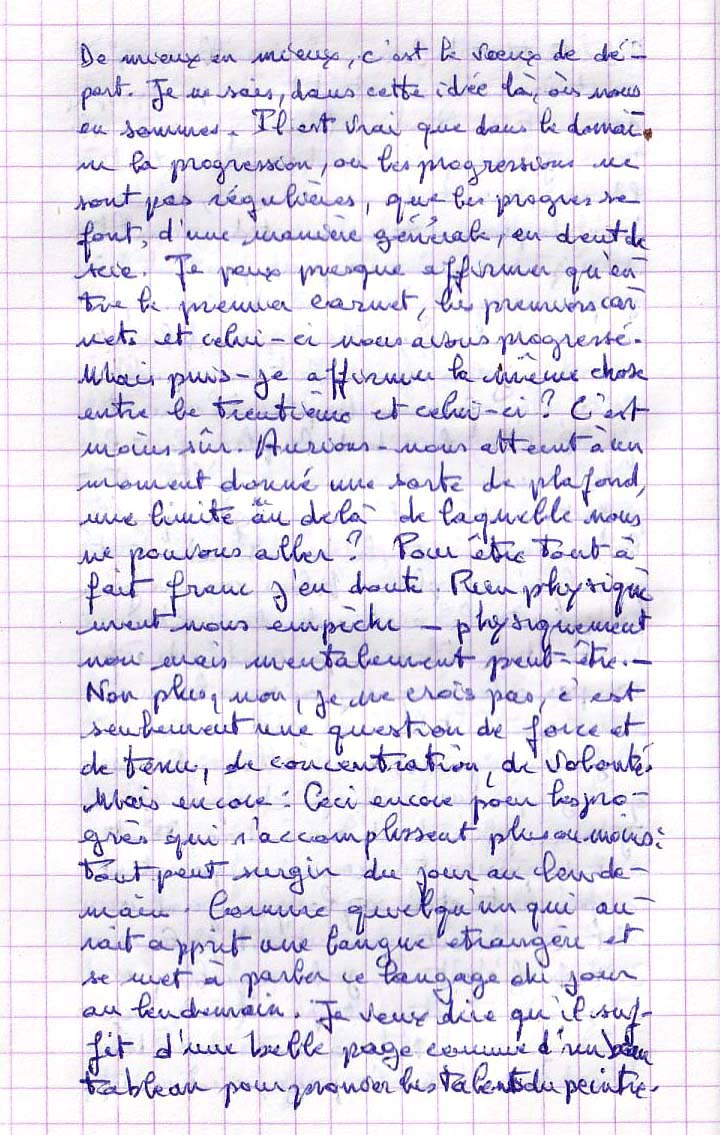 De mieux en mieux, c'est le voeux de dé-
part. Je ne sais, dans cette idée là, où nous
en sommes. Il est vrai que dans le domai-
ne la progression, ou les progressions ne
sont pas régulières, que les progrès se
font, d'une manière générale, en dent de
scie. Je peux presque affirmer qu'en
tre le premier carnet, les premiers car
nets et celui-ci nous avons progressé.
Mais puis-je affirmer la même chose
entre le trentième et celui-ci ? C'est
moins sûr. Aurions-nous atteint à un
moment donné une sorte de plafond,
une limite au delà de laquelle nous
ne pouvons aller ? Pour être tout à
fait franc j'en doute. Rien physique
ment nous empêche - physiquement
non mais mentalement peut-être. -
Non plus, non, je ne crois pas, c'est
seulement une question de force et
de tenu, de concentration, de volonté.
Mais encore : Ceci encore pour les pro-
grès qui s'accomplissent plus ou moins :
tout peut surgir du jour au lende-
main. Comme quelqu'un qui au-
rait apprit une langue étrangère et
se met à parler ce langage du jour
au lendemain. Je veux dire qu'il suf-
fit d'une belle page comme d'un beau
tableau pour prouver les talents du peintre.